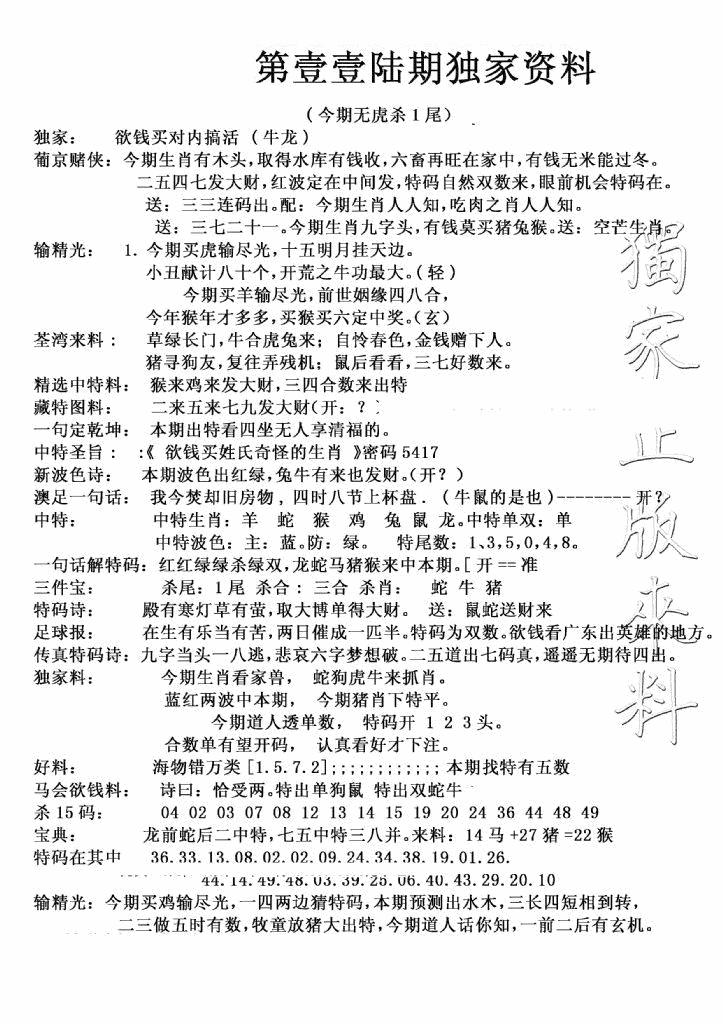 第壹壹陆期独家资料
（今期无虎杀1尾）
独家： 欲钱买对内搞活（牛龙）
葡京赌侠：今期生肖有木头,取得水库有钱收,六畜再旺在家中,有钱无米能过冬。
二五四七发大财,红波定在中间发,特码自然双数来,眼前机会特码在。
送：三三连码出。配：今期生肖人人知,吃肉之肖人人知。
送：三七二十一。今期生肖九字头,有钱莫买猪兔猴。送：空芒生肖。
输精光： 1. 今期买虎输尽光,十五明月挂天边。
小丑献计八十个,开荒之牛功最大。(轻)
今期买羊输尽光,前世姻缘四八合,
今年猴年才多多,买猴买六定中奖。(玄)
荃湾来料： 草绿长门,牛合虎兔来；自怜春色,金钱赠下人。
猪寻狗友,复往弄残机；鼠后看看,三七好数来。
精选中特料： 猴来鸡来发大财,三四合数来出特
藏特图料： 二来五来七九发大财(开：？
一句定乾坤： 本期出特看四坐无人享清福的。
中特圣旨： :《 欲钱买姓氏奇怪的生肖 》密码 5417
新波色诗： 本期波色出红绿,兔牛有来也发财。(开？)
澳足一句话： 我今焚却旧房物，四时八节上杯盘．(牛鼠的是也)--------开？
中特： 中特生肖：羊 蛇 猴 鸡 兔 鼠 龙。中特单双：单
中特波色：主：蓝。防：绿。 特尾数：1、3,5,0,4,8。
一句话解特码：红红绿绿杀绿双,龙蛇马猪猴来中本期。[开==准
三件宝： 杀尾：1尾 杀合：三合 杀肖： 蛇 牛 猪
特码诗： 殿有寒灯草有萤,取大博单得大财。 送：鼠蛇送财来
足球报： 在生有乐当有苦,两日催成一匹半。特码为双数。欲钱看广东出英雄的地方。
传真特码诗：九字当头一八逃,悲哀六字梦想破。二五道出七码真,遥遥无期待四出。
独家料： 今期生肖看家兽， 蛇狗虎牛来抓肖。
蓝红两波中本期， 今期猪肖下特平。
今期道人透单数， 特码开 1 2 3头。
合数单有望开码， 认真看好才下注。
好料： 海物错万类[1.5.7.2];;;;;;;;;;;;本期找特有五数
马会欲钱料： 诗曰：恰受两。特出单狗鼠 特出双蛇牛
杀15码： 04 02 03 07 08 12 13 14 15 19 20 24 36 44 48 49
宝典： 龙前蛇后二中特,七五中特三八并。来料：14马+27猪=22猴
特码在其中 36.33.13.08.02.02.09.24.34.38.19.01.26.
44.14.49.48.03.39.25.06.40.43.29.20.10
输精光：今期买鸡输尽光,一四两边猜特码,本期预测出水木,三长四短相到转,
二三做五时有数,牧童放猪大出特,今期道人话你知,一前二后有玄机。
獨家正版來料